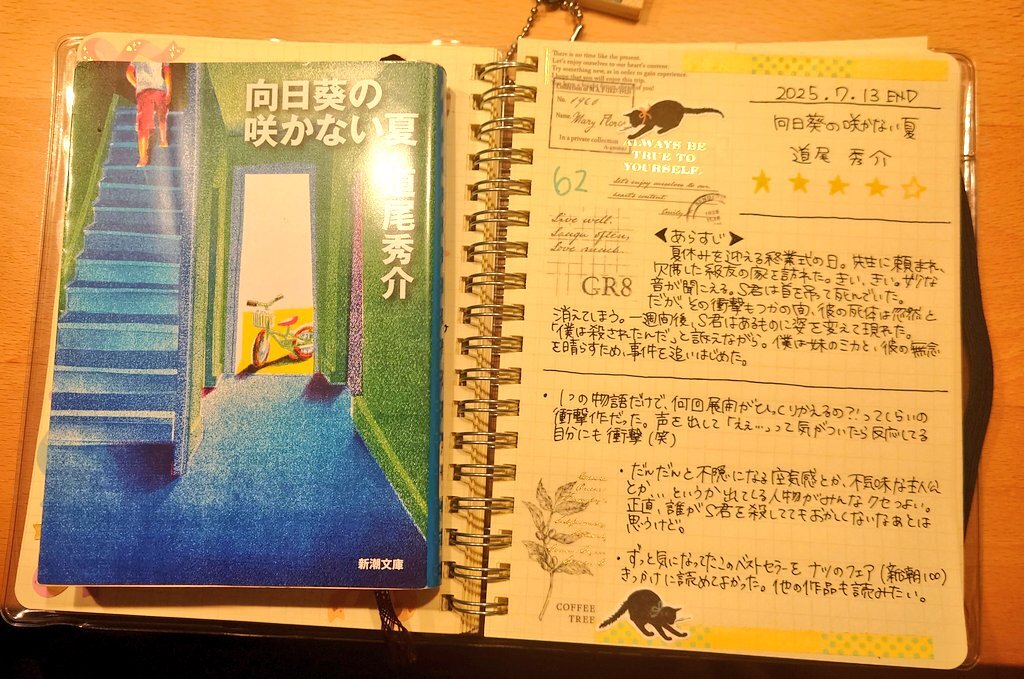 向日葵の
咲かない夏
道尾秀介
新潮文庫
There is no time like the present.
Let's enjoy ourselves to our heart's content.
Try something new, as in order to gain experience.
I hope that you will enjoy this trip.
No. 1900
Name. Mary Flore
In a private collection
ALWAYS BE
TRUE TO
YOURSELF.
62
Let's enjoy ourselves to our
heart's content.
Emily
Live well.
Laugh often,
Love much.
GR8
2025.7.13 END
向日葵の咲かない夏
道尾 秀介
★★★★☆
◀あらすじ▶
夏休みを迎える終業式の日。先生に頼まれ、
欠席した級友の家を訪れた。きい、きい。妙な
音が聞こえる。S君は首を吊って死んでいた。
だが、その衝撃もつかの間、彼の死体は忽然と
消えてしまう。一週間後、S君はあるものに姿を変えて現れた。
「僕は殺されたんだ」と訴えながら。僕は妹のミカと、彼の無念
を晴らすため、事件を追いはじめた。
・1つの物語だけで、何回展開がひっくりかえるの?!ってくらいの
衝撃作だった。声を出して「ええ…」って気がついたら反応してる
自分にも衝撃(笑)
・だんだんと不穏になる空気感とか、不気味な主人公
とか、、というか出てくる人物がみんなクセつよい。
正直、誰がS君を殺しててもおかしくないなぁとは
思うけど。
・ずっと気になってたこのベストセラーを ナツのフェア(新潮100)
きっかけに読めてよかった。他の作品も読みたい。
COFFEE
TREE